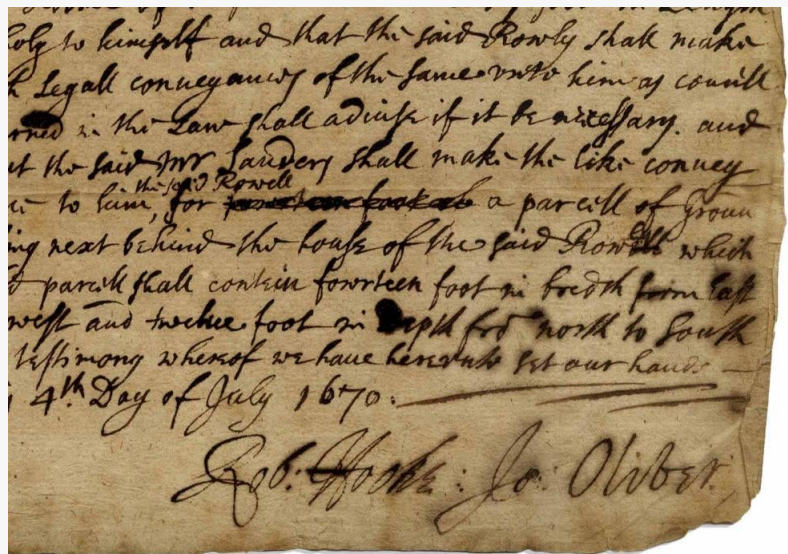 in Length
holy to himself and that the said Rowly shall make
h Legall conveyances of the same vnto him as councill
rned in the Law shall aduise if it be necessary. and
at the said Mr Sanders shall make the like convey
the said Rowell
ce to him, for fowrteen foot a parcell of Groun
ing next behind the house of the said Rowell which
d parcell shall contein fowrteen foot in bredth from East
west and twelue foot in Depth frō north to South
testimony whereof we have herevnto set our hands
4th Day of July 1670:
Rob: Hooke: Jo: Oliver.